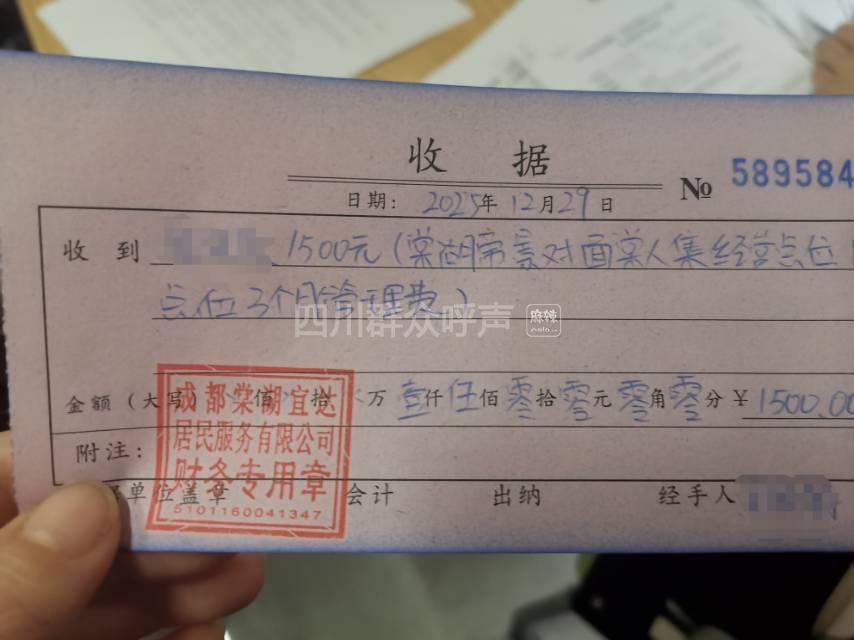 收 据
№ 589584
日期: 2025年12月29日
收 到 1500元(棠湖帝景对面棠人集经营点位
点位3个月管理费)
四川群众呼声 麻辣
金额(大写) 佰 拾 万 壹仟伍佰零拾零元零角零分 ¥ 1500.00
附注:
单位盖章 会计 出纳 经手人
成都棠湖宜达
居民服务有限公司
财务专用章
5101160041347